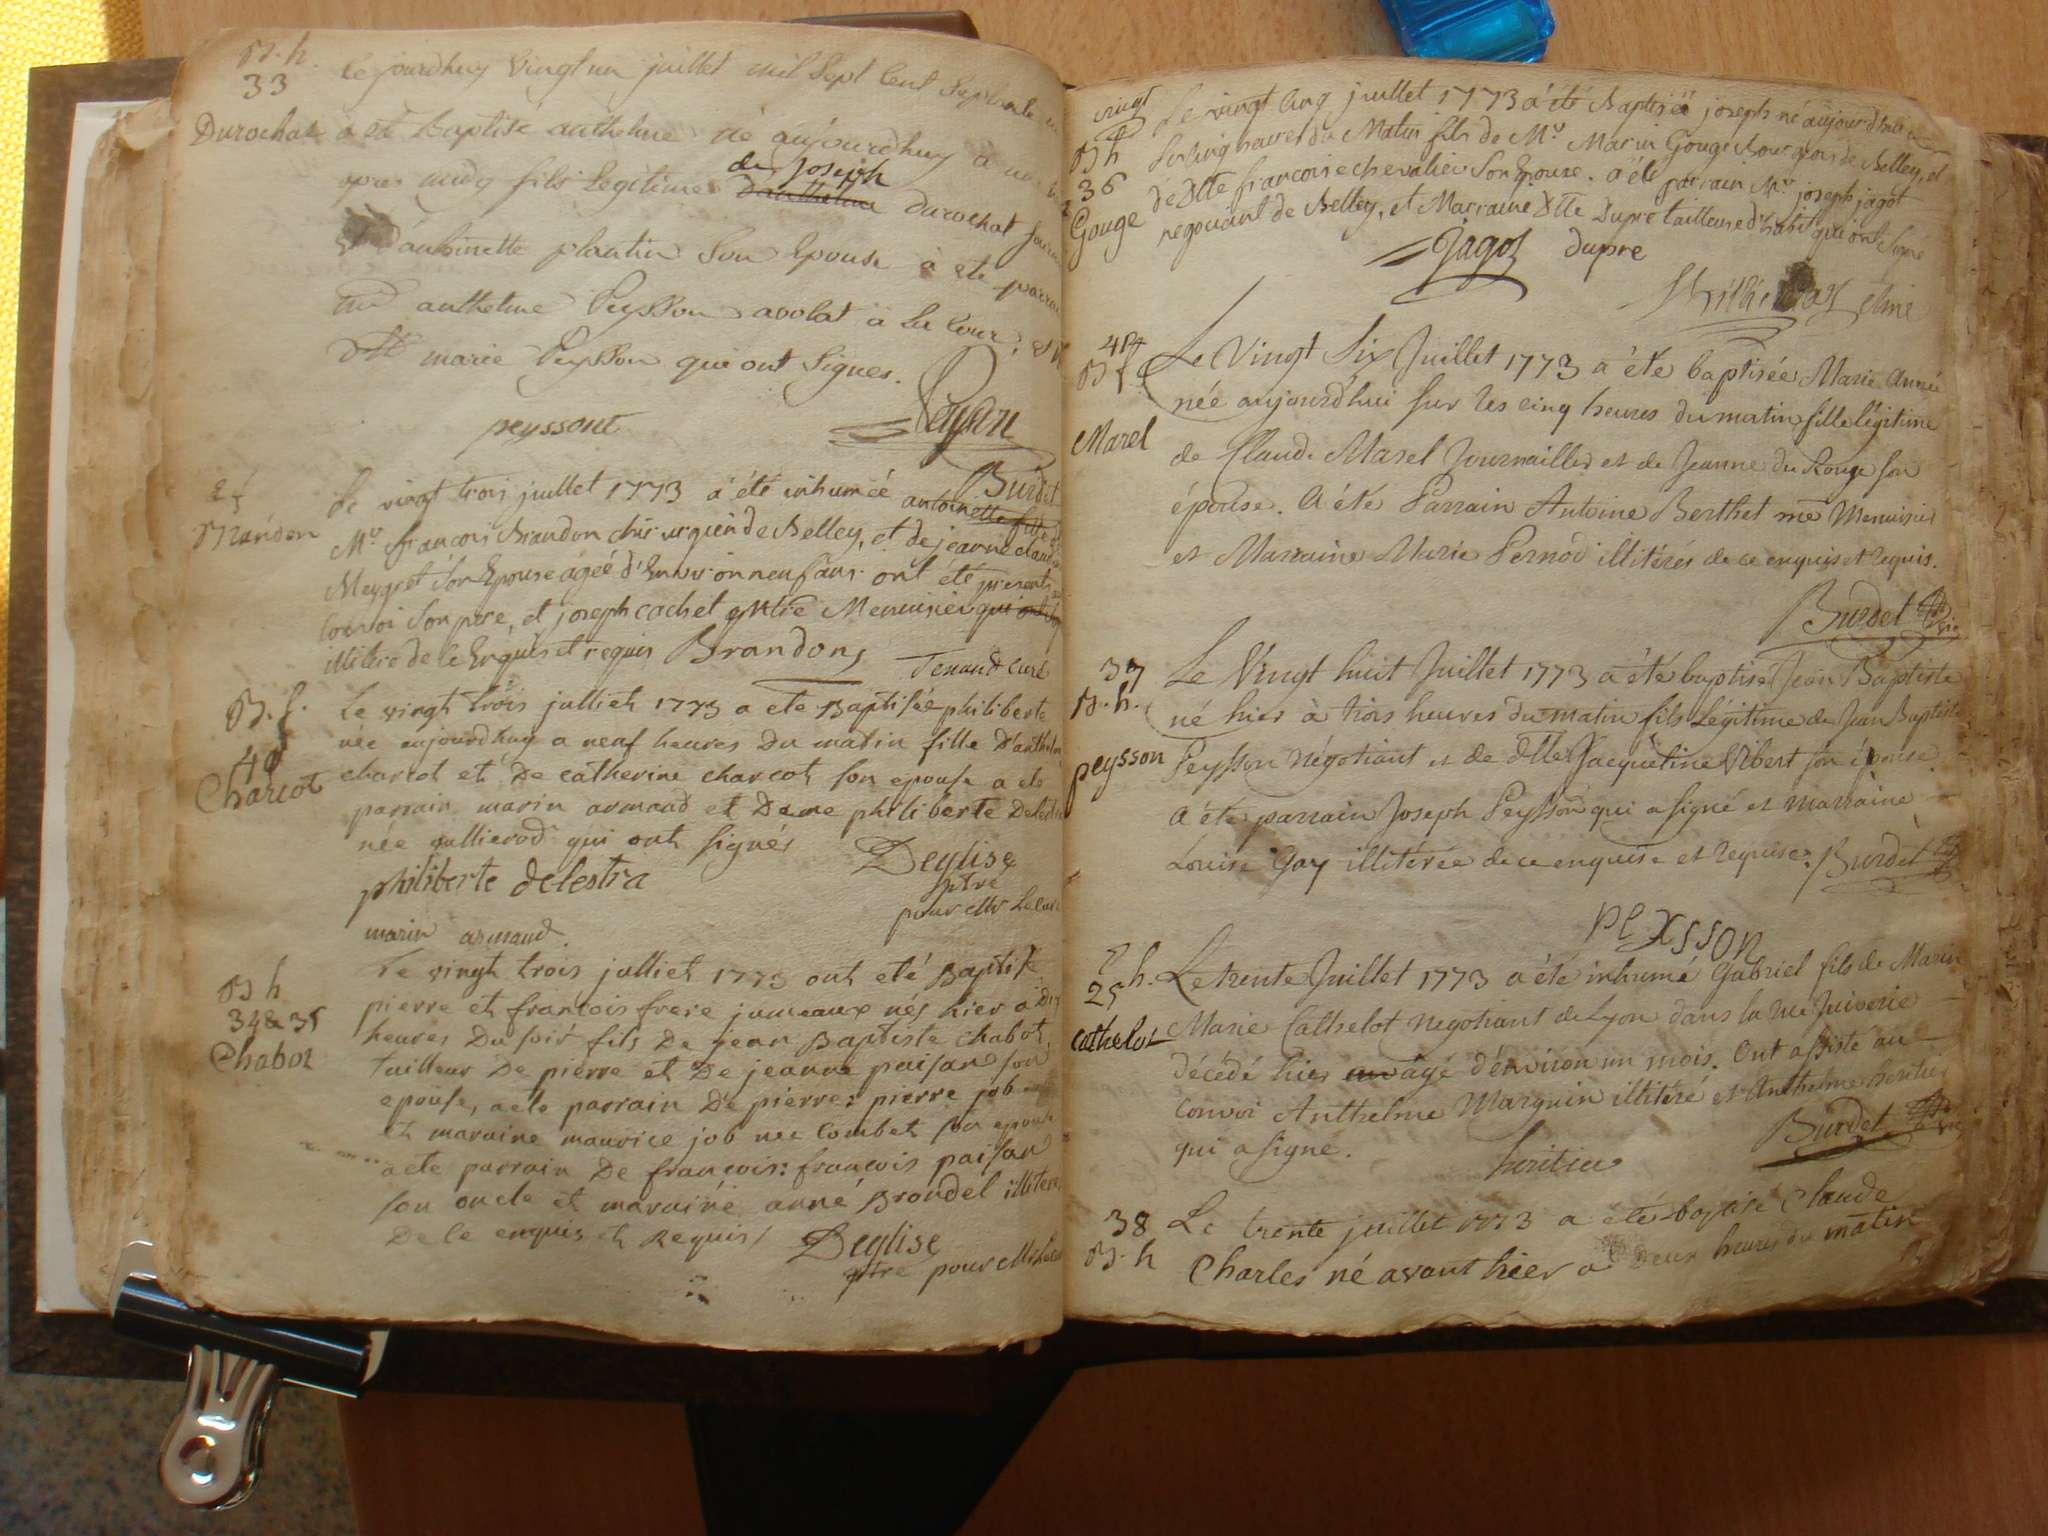 B. h.
33
Durochat
Cejourdhuy vingt un juillet mil sept cent septante
a été baptisé anthelme né aujourdhuy a
apres midy fils legitime danthelme de Joseph durochat
et d'anthoinette plantin son epouse a été
anthelme Peysson avocat a la Cour, et
dlle marie Peysson qui ont signés.
peyssont
Burdet
25
Brandon
Le vingt trois juillet 1773 a été inhumée antoinette fille
Mr françois Brandon chirurgien de Belley, et de jeanne
Meygret son Epouse agée d'Environ neuf ans. ont été presents
convoi son pere, et joseph cachet Menuisier qui ont
illitere de ce Enquis et requis Brandon Tenand curé
B. f.
40
Charcot
Le vingt trois julliet 1773 a ete Baptisée philiberte
née aujourdhuy a neuf heures Du matin fille D'anthelme
charcot et De catherine charcot son epouse a ete
parrain marin armand et Dame philiberte
née qui ont signés
Deglise
ptre
pour Mr Le curé
philiberte delestra
marin armand.
B h
34 & 35
Chabot
Le vingt trois julliet 1773 ont eté Baptisé
pierre et francois frere jumeaux nés hier a Dix
heures Du soir fils De jean Baptiste Chabot,
tailleur De pierre et De jeanne paisan son
epouse, a ete parrain De pierre: pierre job
et maraine maurice job nee Combet son epouse
a ete parrain De françois: francois paisan
son oncle et maraine anne Brondel illiteré
De ce enquis et Requis /
Deglise
ptre pour Mr Le curé
vingt
B h
36
Gouge
Le vingt cinq juillet 1773 a été Baptisé joseph né aujourdhui
Sur cinq heures du Matin fils de Mr Marin Gouge Bourgeois de Belley, et
de Dlle francoise chevalier Son Epouse. a été parrain Mr joseph jagot
negotiant de Belley, et Marraine Dlle Dupré tailleuse d'habit qui ont Signé
Jagot dupre
41
B f.
Marel
Le Vingt Six Juillet 1773 a été baptisée Marie Anne
née aujourd'hui sur les cinq heures du matin fille légitime
de Claude Marel Journaillier et de Jeanne du Rouge son
épouse. A été Parrain Antoine Berthet me Menuisier
et Marraine Marie Pernod illitérés de ce enquis et requis.
Burdet
37
B. h.
peysson
Le Vingt huit Juillet 1773 a été baptisé Jean Baptiste
né hier à trois heures du matin fils Légitime de Jean Baptiste
Peysson négotiant et de dlle Jacqueline Vibert son épouse
A été parrain Joseph Peysson qui a signé et marraine
Louise Gay illitérée de ce enquise et requise. Burdet
peysson
h.
25
Cathelot
Le trente Juillet 1773 a été inhumé Gabriel fils de Marin
Marie Cathelot negotiant de Lyon dans la rue Juiverie
décédé hier agé d'environ un mois. Ont assisté au
convoi Anthelme Marguin illitéré et Anthelme heritier
qui a signé.
heritier
Burdet
38
B. h
Le trente juillet 1773 a été baptisé Claude
Charles né avant hier a deux heures du matin